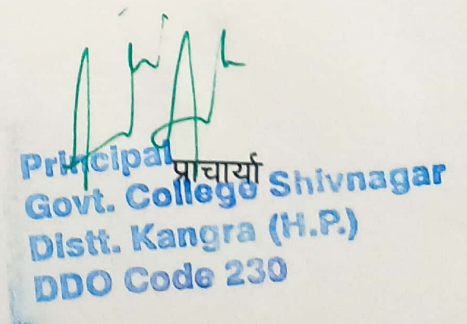 Principal
प्राचार्या
Govt. College Shivnagar
Distt. Kangra (H.P.)
DDO Code 230